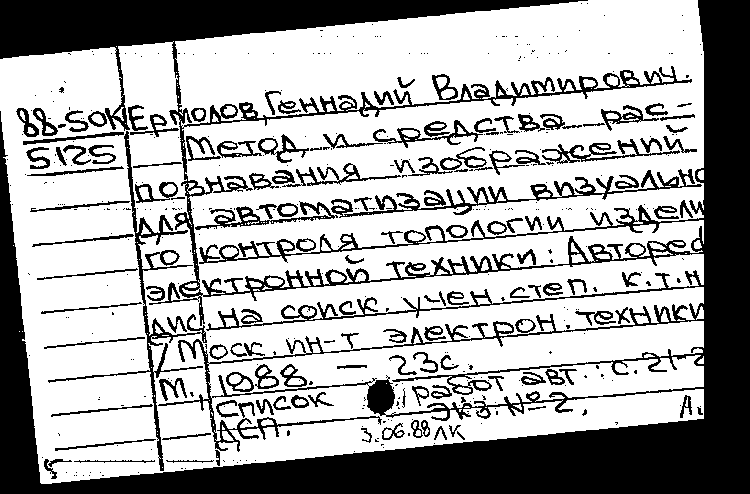 88-50К Ермолов, Геннадий Владимирович.
5125 Метод и средства рас-
познавания изображений
для автоматизации визуально
го контроля топологии издели
электронной техники: Автореф
дис. на соиск. учен. степ. к.т.н
/ Моск. ин-т электрон. техники
М., 1988. — 23с.
Список работ авт.: с. 21-2
ДСП. Экз. № 2.
3.06.88 ЛК